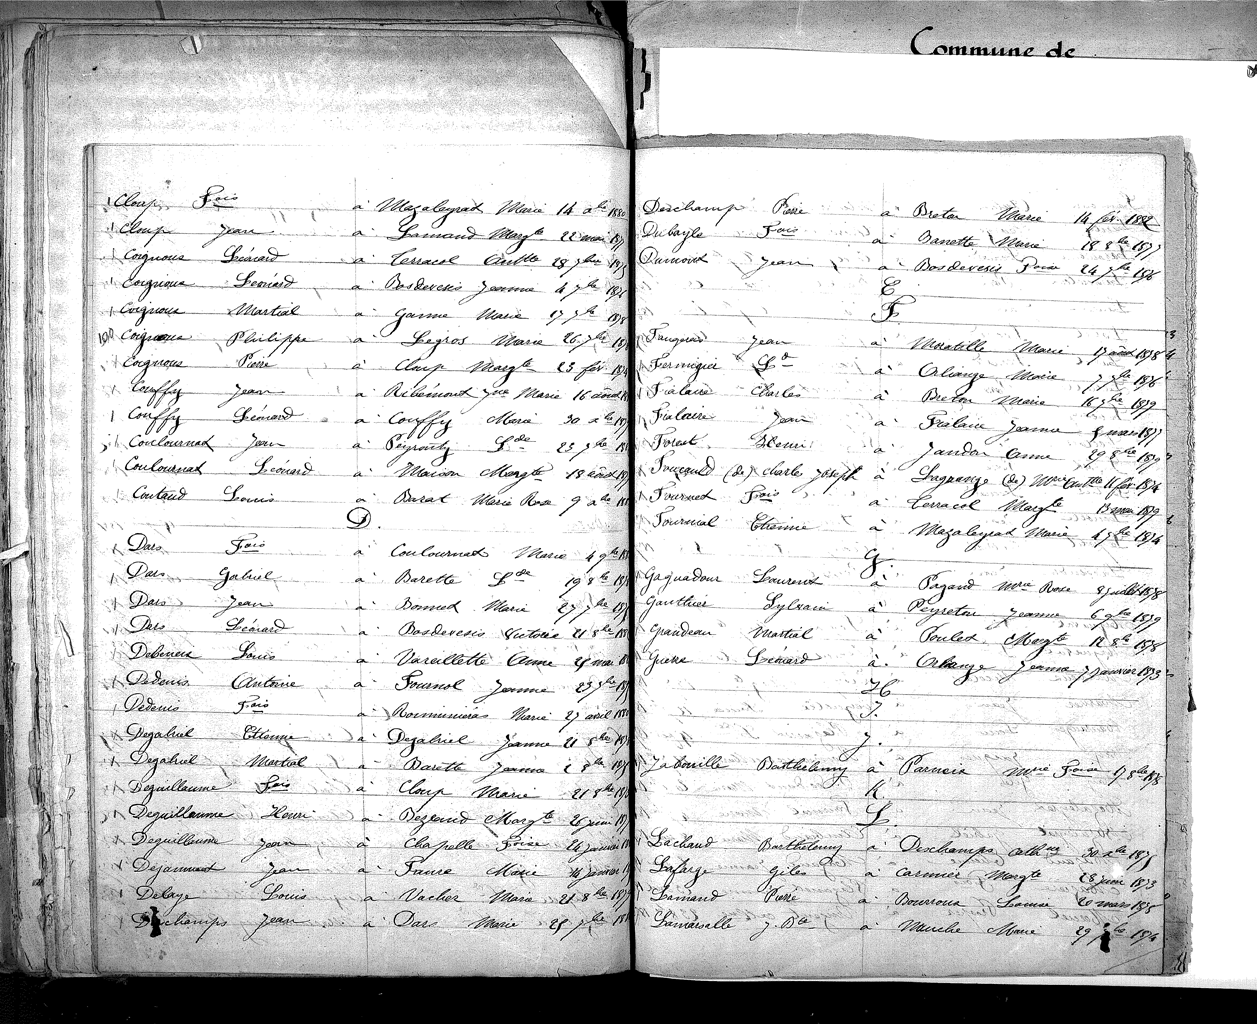 Commune de
Cloup Fois à Mazaleyrat Marie 14 xbre 1880
Cloup Jean à Lamand Margte 22 mai
Coignoux Léonard à Terracol 28 7bre 1875
Coignoux Léonard à Bosdevesis Jeanne 4 7bre
Coignoux Martial à Ganne Marie 17 7bre
Coignoux Philippe à Legros Marie 26 7bre
Coignoux Pierre à Cloup Margte 25 fév
Couffy Jean à Ribémont Marie 16 août
Couffy Léonard à Couffy Marie 30 xbre
Coulournat Jean à Lde 25 7bre
Coulournat Léonard à Maison Margte 18 août
Coutaud Louis à Barat Marie Rose 9 xbre
D.
Dars Fois à Coulournat Marie 4 9bre
Dars Gabriel à Barette Lde 19 8bre
Dars Jean à Bonnet Marie 27 7bre
Dars Léonard à Bosdevesis Victoire 21 8bre
Louis à Vareillette Anne mai
Dedenis Antoine à Fournol Jeanne 23 7bre
Dedenis Fois à Marie 27 avril
Degabriel Etienne à Degabriel Jeanne 21 8bre
Degabriel Martial à Barette Jeanne 8bre
Deguillaume Fois à Cloup Marie 21 8bre
Deguillaume Henri à Margte 26 juin
Deguillaume Jean à Chapelle Foise 24 janvier
Dejammet Jean à Faure Marie 16 janvier
Delage Louis à Vacher Marie 21 8bre
Deschamps Jean à Dars Marie 25 7bre
Deschamp Pierre à Breton Marie 14 fév. 1882
Dubayle Fois à Banette Marie 18 8bre 1877
Dumont Jean à Bosdevesis Foise 24 7bre 1876
E
F
Jean à Marie 17 août 1878
Fermigier Ld à Alanze Marie 7 xbre 1876
Fialaire Charles à Breton Marie 16 7bre 1879
Fialaire Jean à Fialaire Jeanne mars 1877
Forest Henri à Jandon Anne 29 8bre 1879
Foucauld (de) Charles Joseph à Lagrange (de) Mrie Anttte 11 fév. 1874
Fournet Fois à Terracol Margte 15 mai 1879
Fournial Etienne à Mazaleyrat Marie 4 7bre 1874
G.
Gaguadour Laurent à Pagand Mrie Rose 8 juillet 1878
Gauthier Sylvain à Peyreton Jeanne 6 9bre 1879
Grandeau Martial à Poulet Margte 12 8bre 1878
Guerre Léonard à Alanze Jeanne 7 janvier 1873
H
I.
J.
Jabouille Barthélemy à Mrie Foise 17 8bre 1878
K
L
Lachaud Barthelemy à Deschamps 30 xbre 1875
Lafarge Giles à Carmier Margte 28 juin 1873
Lamand Pierre à Bourroux Léonne 20 mars 1875
Lamarsalle J. Bte à Manche Marie 29